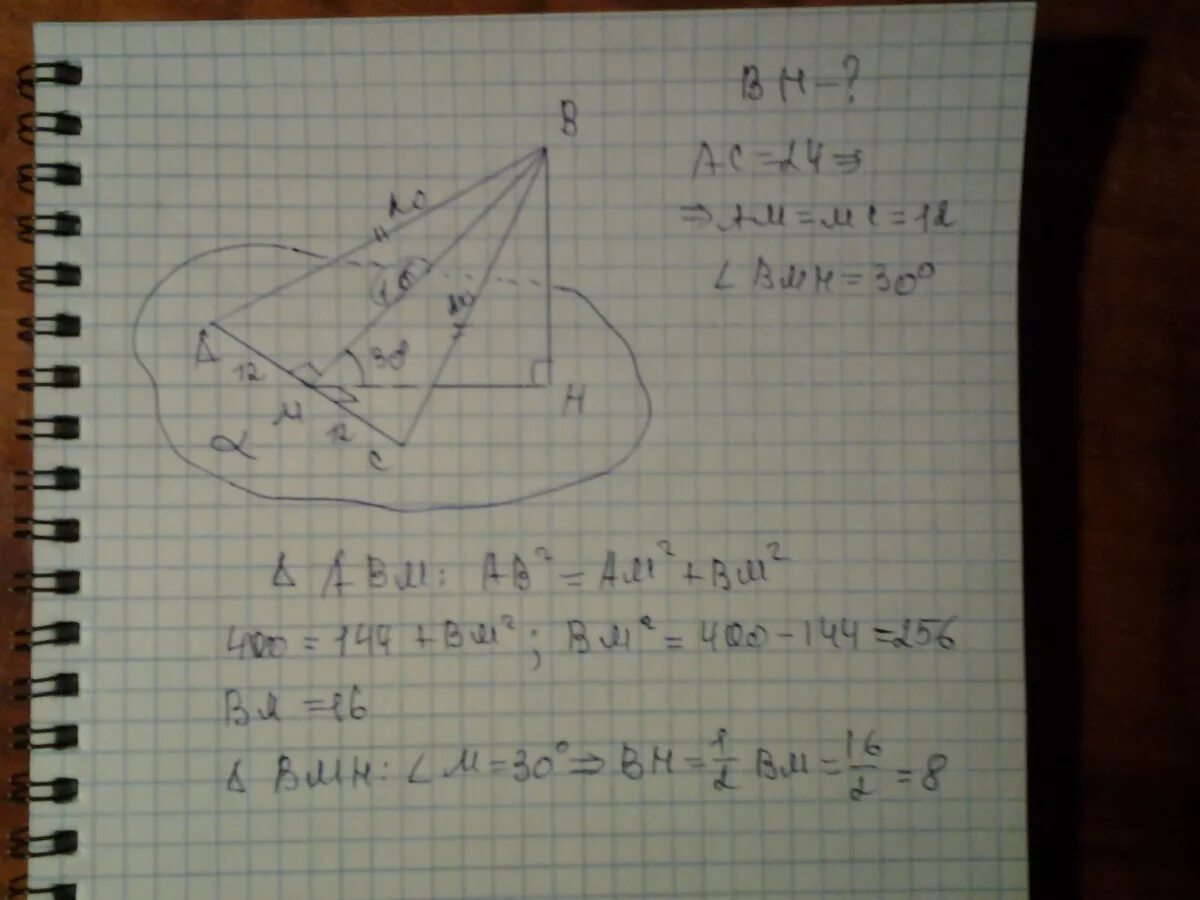 B
20
16
20
30°
A
12
M
12
C
H
α
BH-?
AC=24⇒
⇒AM=MC=12
∠BMH=30°
Δ ABM: AB²=AM²+BM²
400=144+BM²; BM²=400-144=256
BM=16
Δ BMH: ∠M=30°⇒BH=1/2 BM=16/2=8